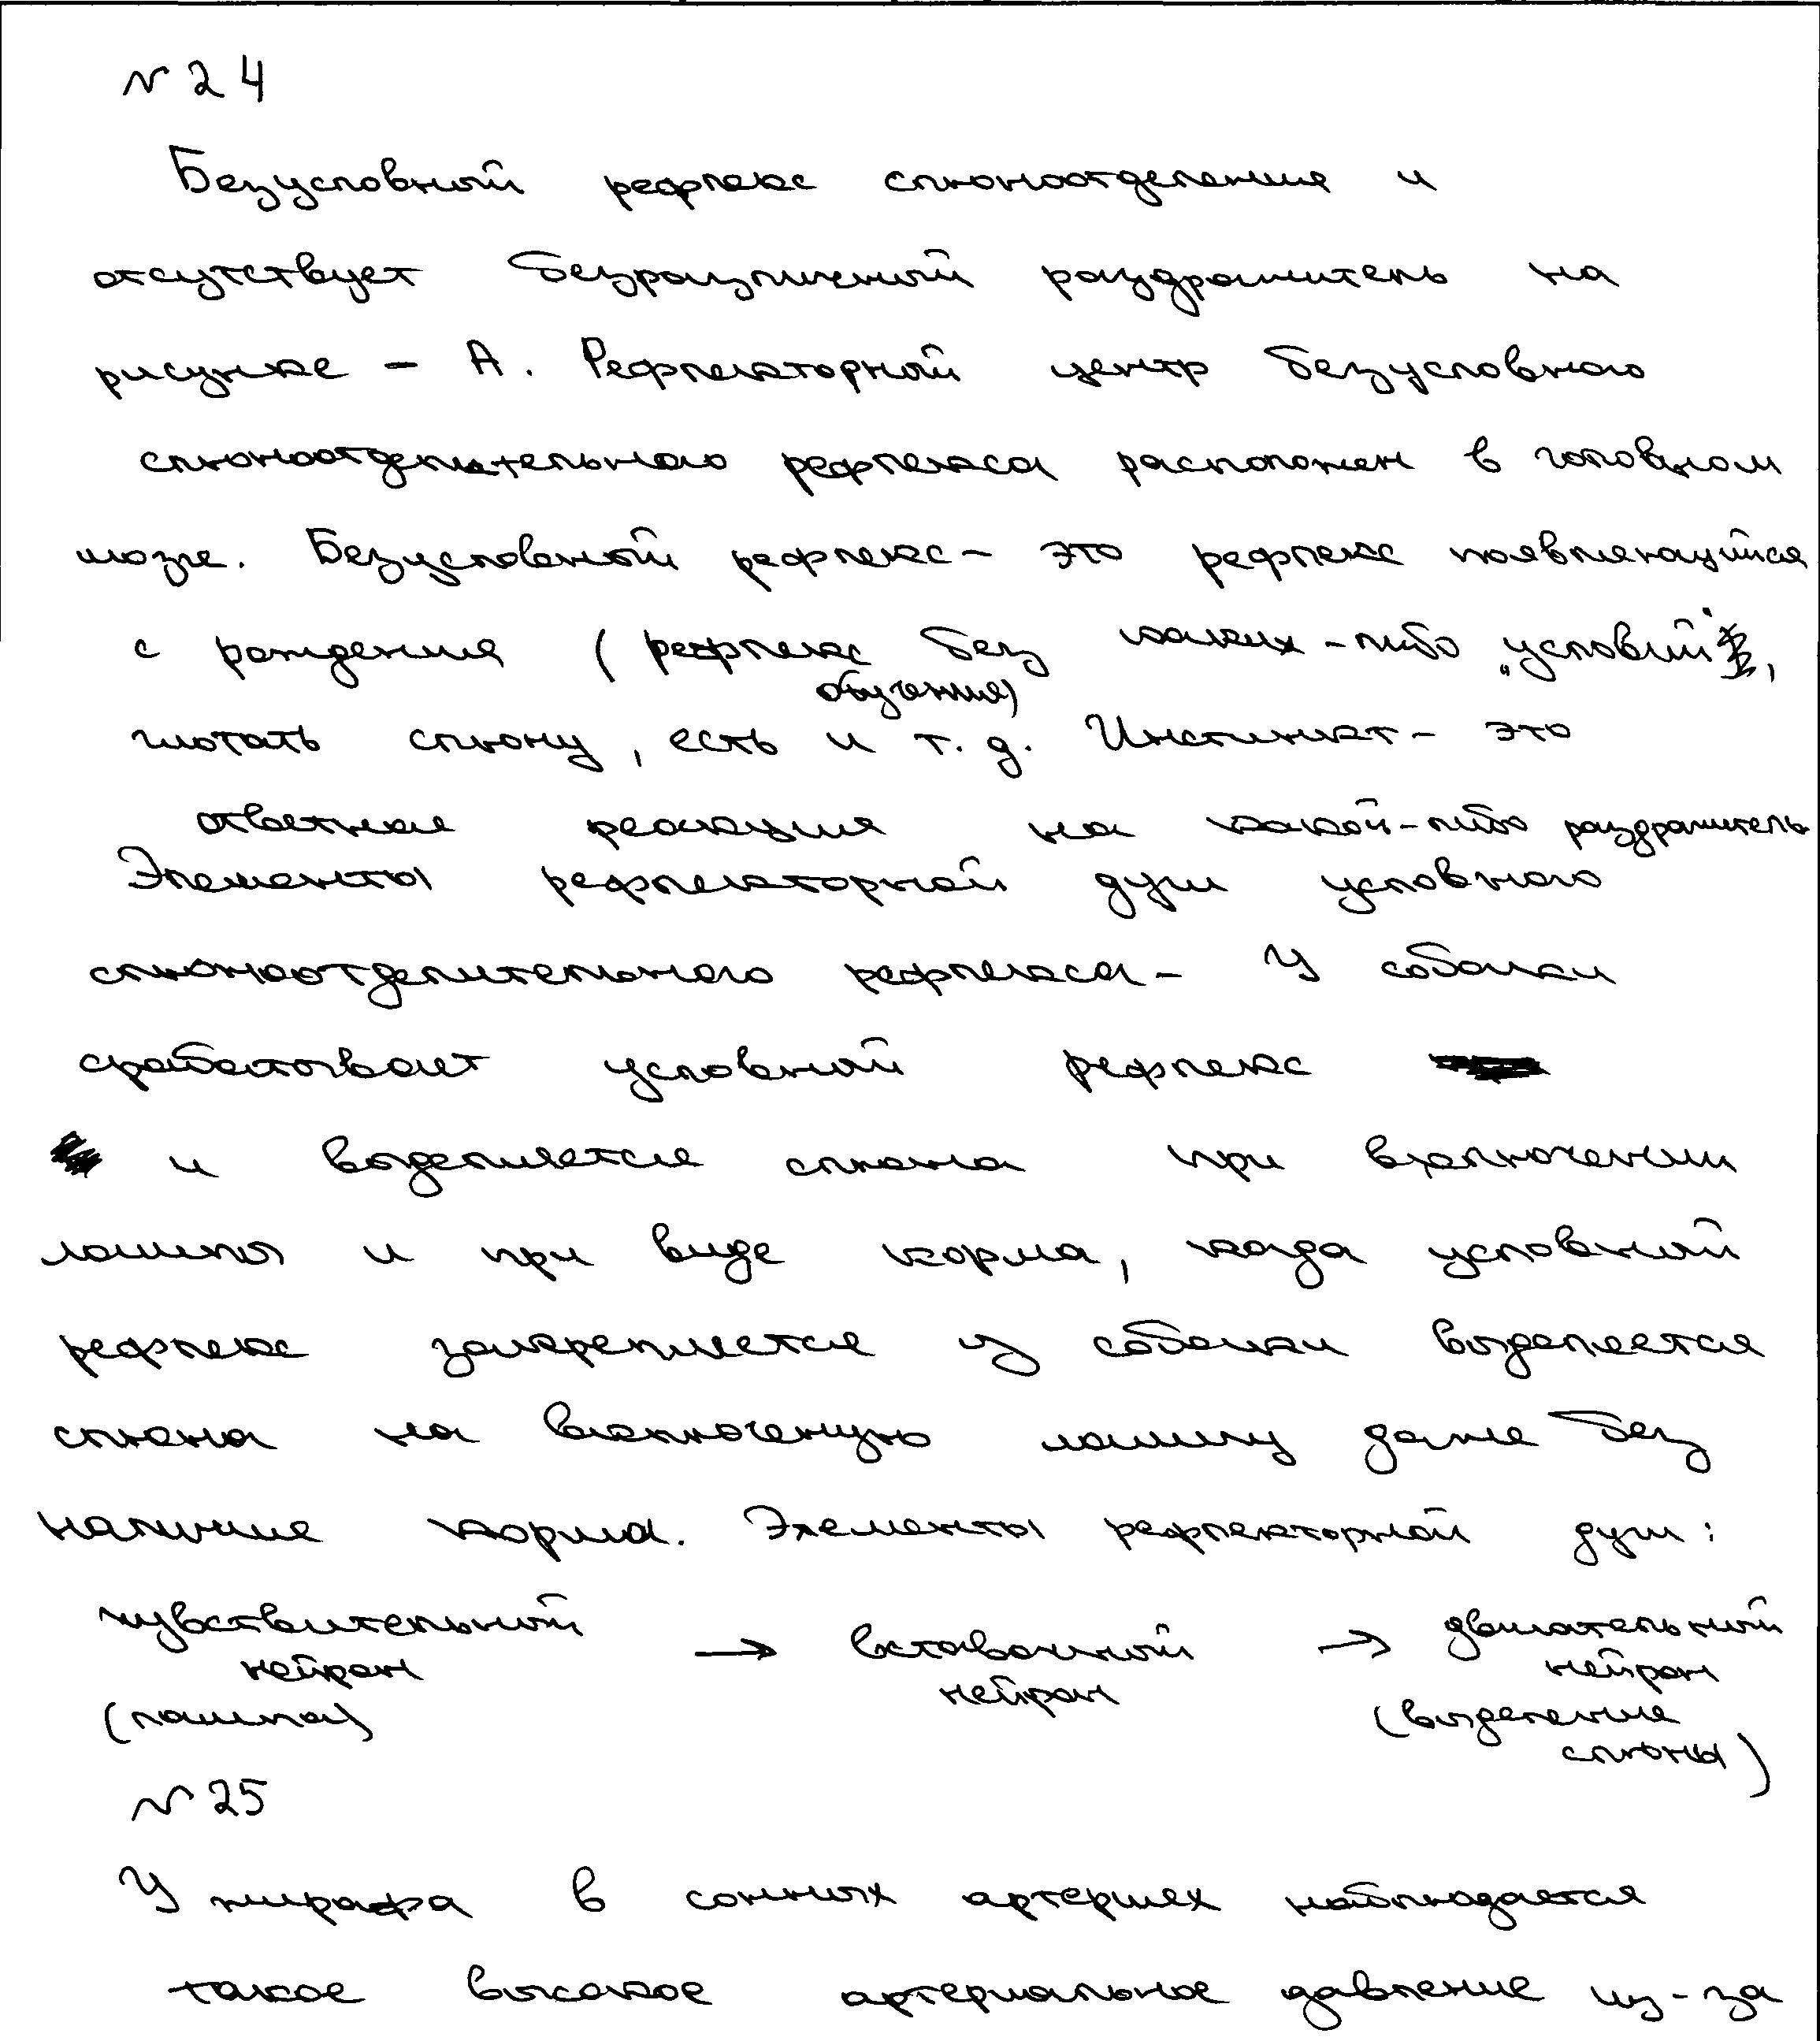 № 24
Безусловный рефлекс слюноотделения и
отсутствует безразличный раздражитель на
рисунке – А. Рефлекторный центр безусловного
слюноотделительного рефлекса расположен в головном
мозге. Безусловный рефлекс – это рефлекс появляющийся
с рождения (рефлекс без каких-либо „условий",
обучения)
глотать слюну, есть и т.д. Инстинкт – это
ответная реакция на какой-либо раздражитель
Элементы рефлекторной дуги условного
слюноотделительного рефлекса – У собаки
срабатывает условный рефлекс
и выделяется слюна при включении
лампы и при виде корма, когда условный
рефлекс закрепляется у собаки выделеется
слюна на включеную лампу даже без
наличие корма. Элементы рефлекторной дуги:
чувствительный нейрон (лампа) → вставочный нейрон → двигательный нейрон (выделение слюны)
№ 25
У жирафа в сонных артериях наблюдается
такое высокое артериальное давление из-за